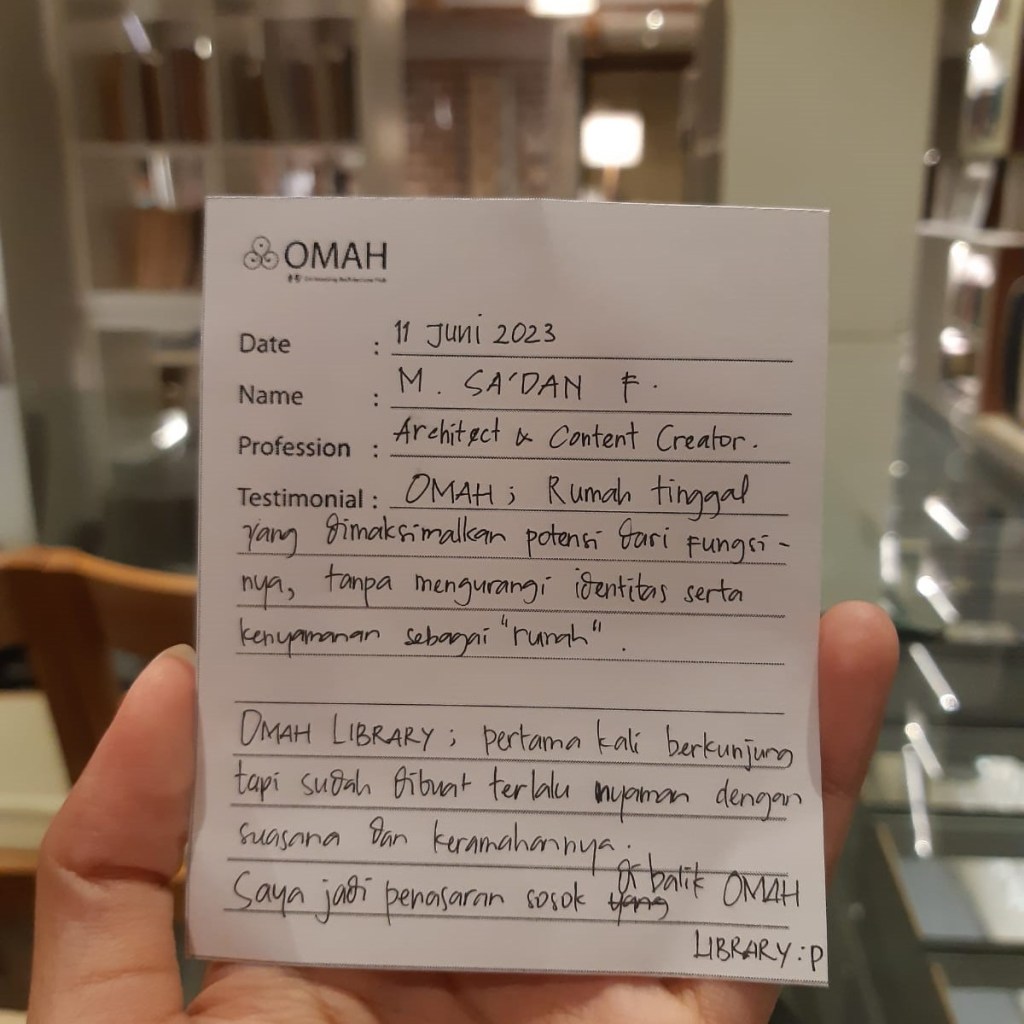 OMAH
Date : 11 Juni 2023
Name : M. SA'DAN F.
Profession : Architect & Content Creator.
Testimonial : OMAH ; Rumah tinggal
yang dimaksimalkan potensi dari fungsi-
nya, tanpa mengurangi identitas serta
kenyamanan sebagai "rumah".
OMAH LIBRARY ; pertama kali berkunjung
tapi sudah dibuat terlalu nyaman dengan
suasana dan keramahannya.
Saya jadi penasaran sosok yang di balik OMAH
LIBRARY :p